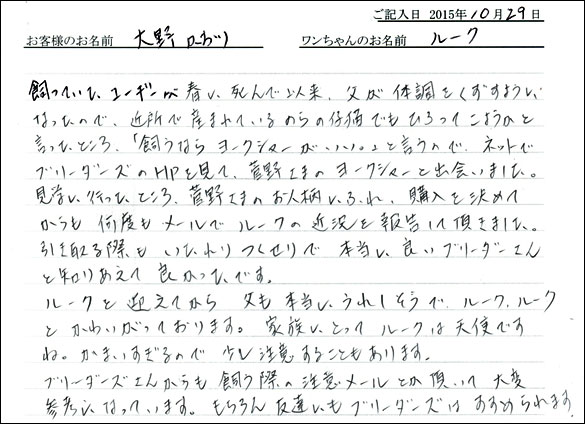 ご記入日 2015年10月29日
お客様のお名前 大野 かおり ワンちゃんのお名前 ルーク
飼っていた、コーギーが春に死んで以来、父が体調をくずすように
なったので、近所で産まれているのらの仔猫でもひろってこようかと
言ったところ、「飼うならヨークシャーがいい。」と言うので、ネットで
ブリーダーズのHPを見て、菅野さまのヨークシャーと出会いました。
見学に行ったところ、菅野さまのお人柄にふれ、購入を決めて
からも何度もメールでルークの近況を報告して頂きました。
引き取る際もいたれりつくせりで本当に良いブリーダーさん
と知りあえて良かったです。
ルークを迎えてから父も本当にうれしそうで、ルーク、ルーク
とかわいがっております。家族にとってルークは天使です
ね。かまいすぎるので少し注意することもあります。
ブリーダーズさんからも飼う際の注意メールとか頂いて大変
参考になっています。もちろん友達にもブリーダーズはすすめられます